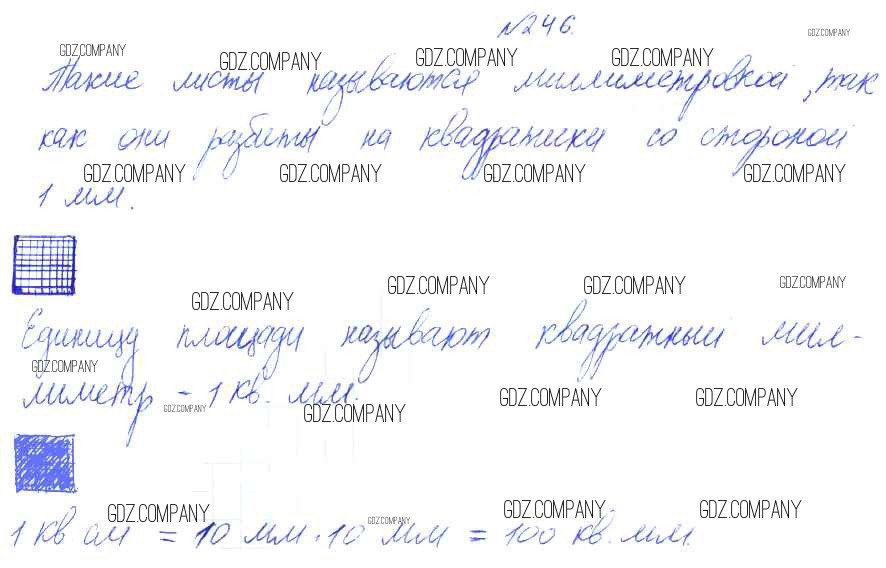 №246.
GDZ.COMPANY
GDZ.COMPANY GDZ.COMPANY GDZ.COMPANY GDZ.COMPANY
Такие листы называются миллиметровкой, так
как они разбиты на квадратики со стороной
GDZ.COMPANY GDZ.COMPANY GDZ.COMPANY GDZ.COMPANY
1 мм.
GDZ.COMPANY GDZ.COMPANY GDZ.COMPANY GDZ.COMPANY
Единицу площади называют квадратный мил-
GDZ.COMPANY
лиметр - 1 кв. мм.
GDZ.COMPANY GDZ.COMPANY GDZ.COMPANY GDZ.COMPANY
GDZ.COMPANY GDZ.COMPANY GDZ.COMPANY GDZ.COMPANY
1 кв см = 10 мм · 10 мм = 100 кв. мм.